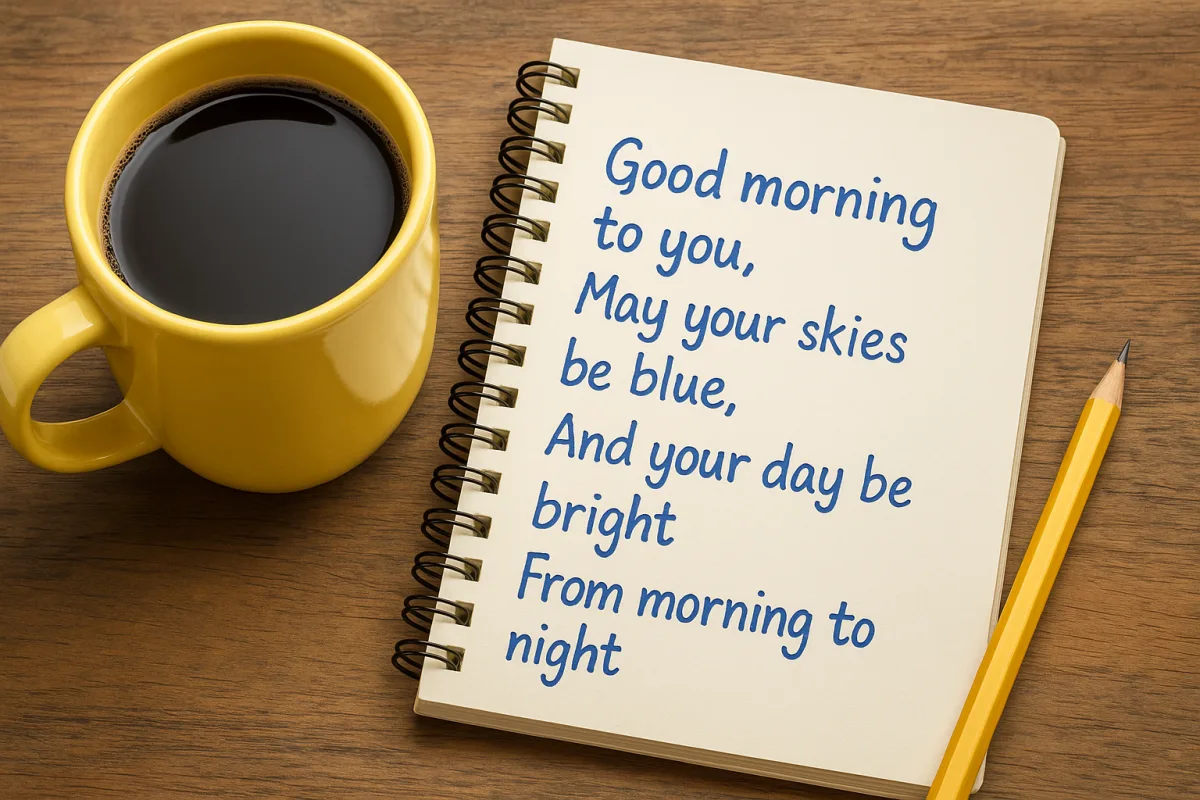 Good morning
to you,
May your skies
be blue,
And your day be
bright
From morning to
night